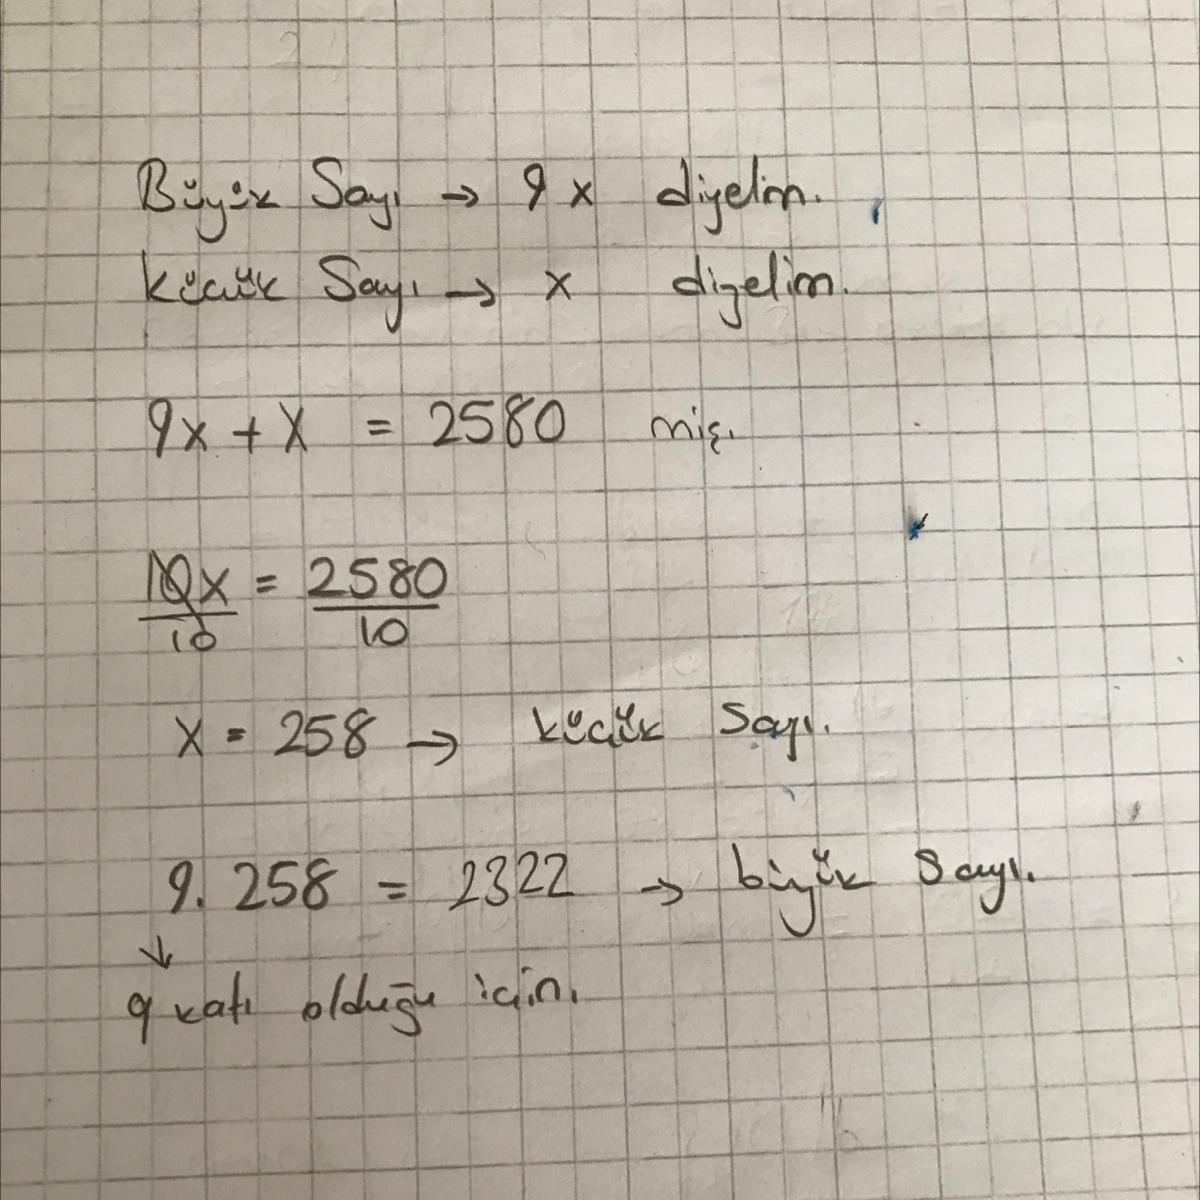 Büyük Sayı → 9x diyelim.
küçük Sayı → x diyelim.
9x + x = 2580 miş.
10x/10 = 2580/10
x = 258 → küçük sayı.
9. 258 = 2322 → büyük sayı.
↓
9 katı olduğu için.